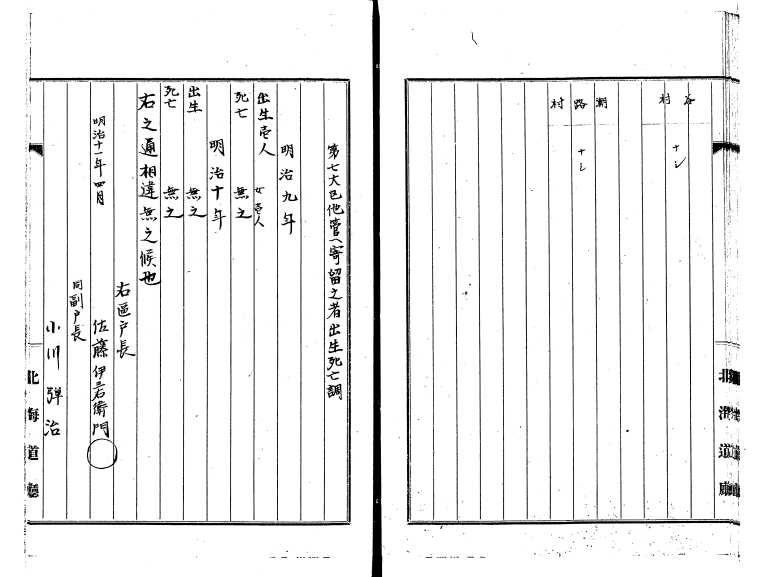 谷村
ナシ
潮路村
ナシ
第七大区他管ヘ寄留之者出生死亡調
明治九年
出生壱人 女壱人
死亡 無之
明治十年
出生 無之
死亡 無之
右之通相違無之候也
明治十一年四月
右區戸長
佐藤伊三右衛門
同副戸長
小川弾治
北海道廳